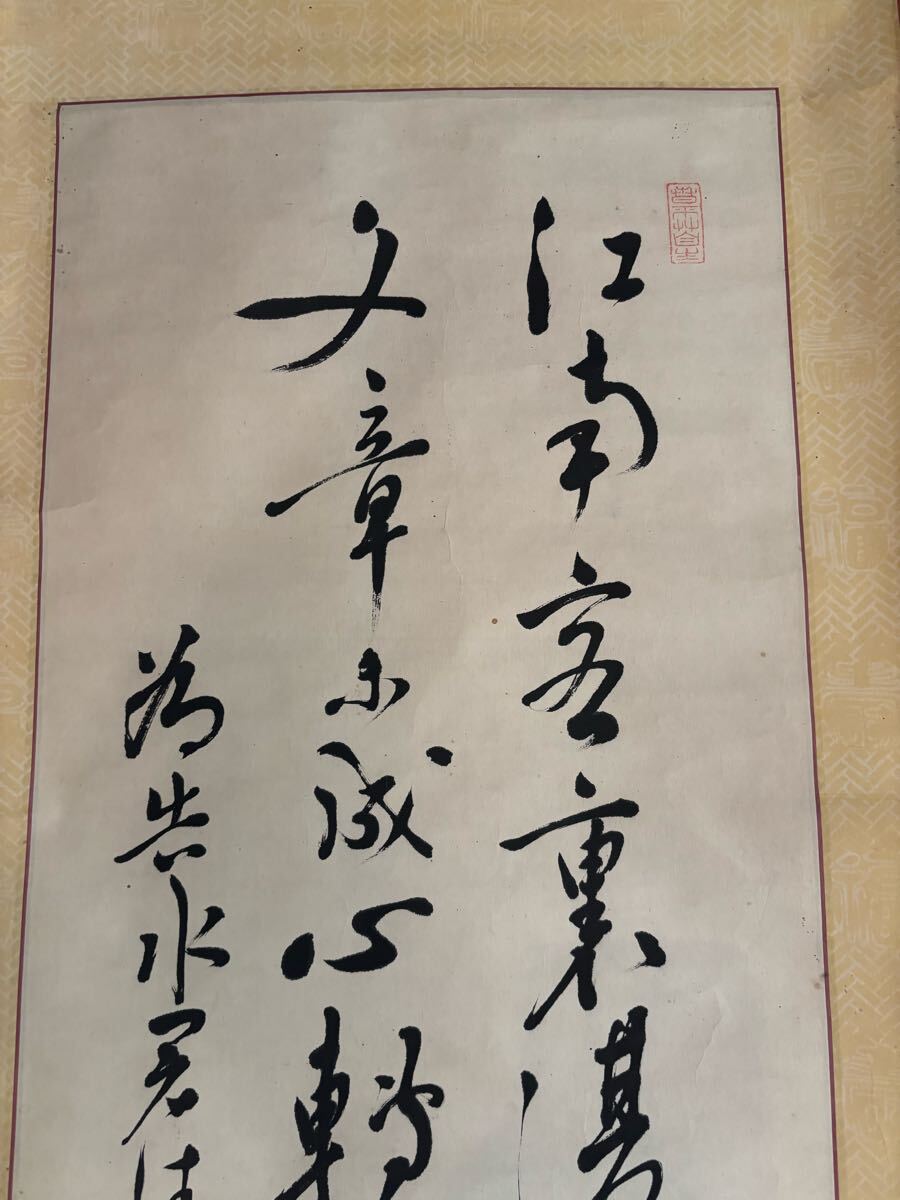 江南客裏
文章未成心轉
為告水君